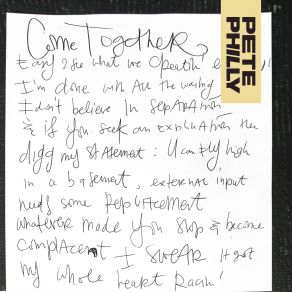 Come Together
PETE PHILLY
Easy 2 see what we Creatin'
I'm done with All the wasting
I don't believe in separation
& if you seek an explination then
digg my statement: U can fly high
in a basement, external input
needs some replacement
whatever made you stop & become
complacent I swear it got
my whole heart Racin'